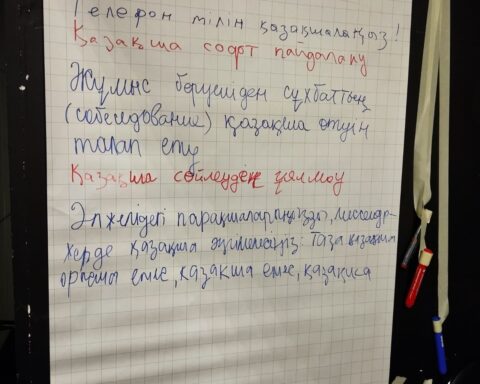 Телефон тілін қазақшалаңыз!
Қазақша софт пайдалану
Жұмыс берушіден сұхбаттың
(собеседование) қазақша өтуін
талап ету
Қазақша сөйлеуден ұялмау
Әлжелідегі парақшаларыңызды,
жерде қазақша әңгімелесіңіз: Таза қазақша
емес, қазақша емес, қазақша